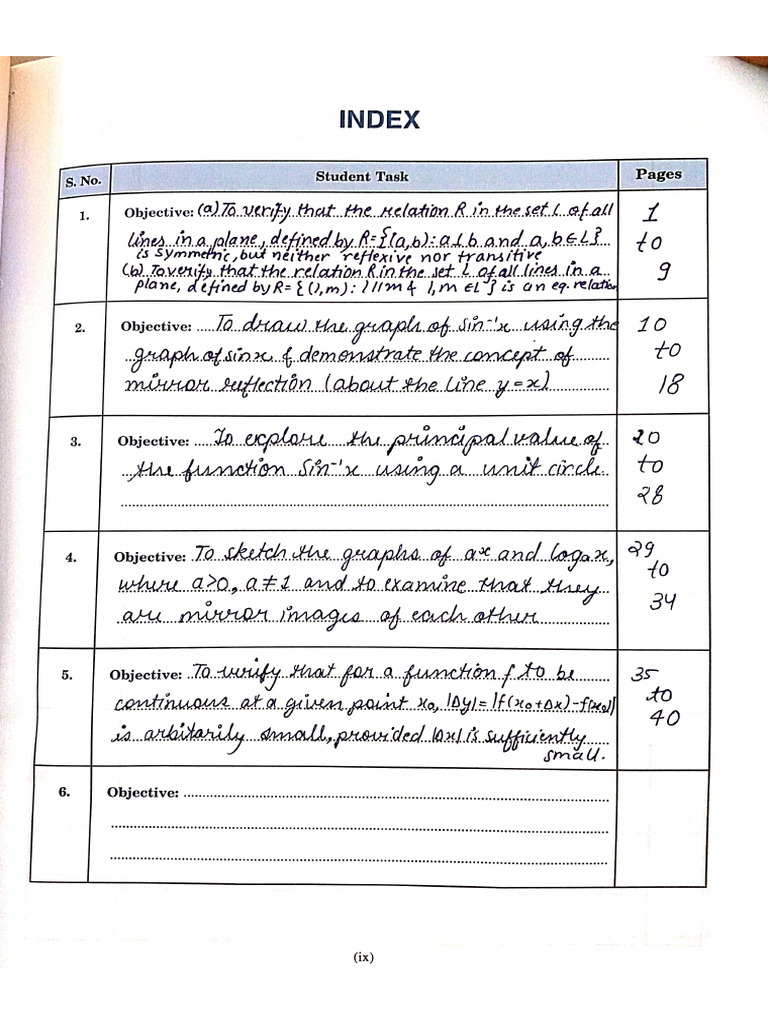 INDEX
S. No. Student Task Pages
1. Objective: (a) To verify that the relation R in the set L of all 1
lines in a plane, defined by R={(a,b): a⊥b and a,b∈L} to
is symmetric, but neither reflexive nor transitive
(b) To verify that the relation R in the set L of all lines in a 9
plane, defined by R= {(l,m): l||m & l,m ∈L} is an eq. relation
2. Objective: To draw the graph of sin⁻¹x using the 10
graph of sinx & demonstrate the concept of to
mirror reflection (about the line y=x) 18
3. Objective: To explore the principal value of 20
the function Sin⁻¹x using a unit circle to
28
4. Objective: To sketch the graphs of aˣ and logₐx, 29
where a>0, a≠1 and to examine that they to
are mirror images of each other 34
5. Objective: To verify that for a function f to be 35
continuous at a given point x₀, |Δy|=|f(x₀+Δx)-f(x₀)| to
is arbitarily small, provided |Δx| is sufficiently 40
small.
6. Objective:
(ix)